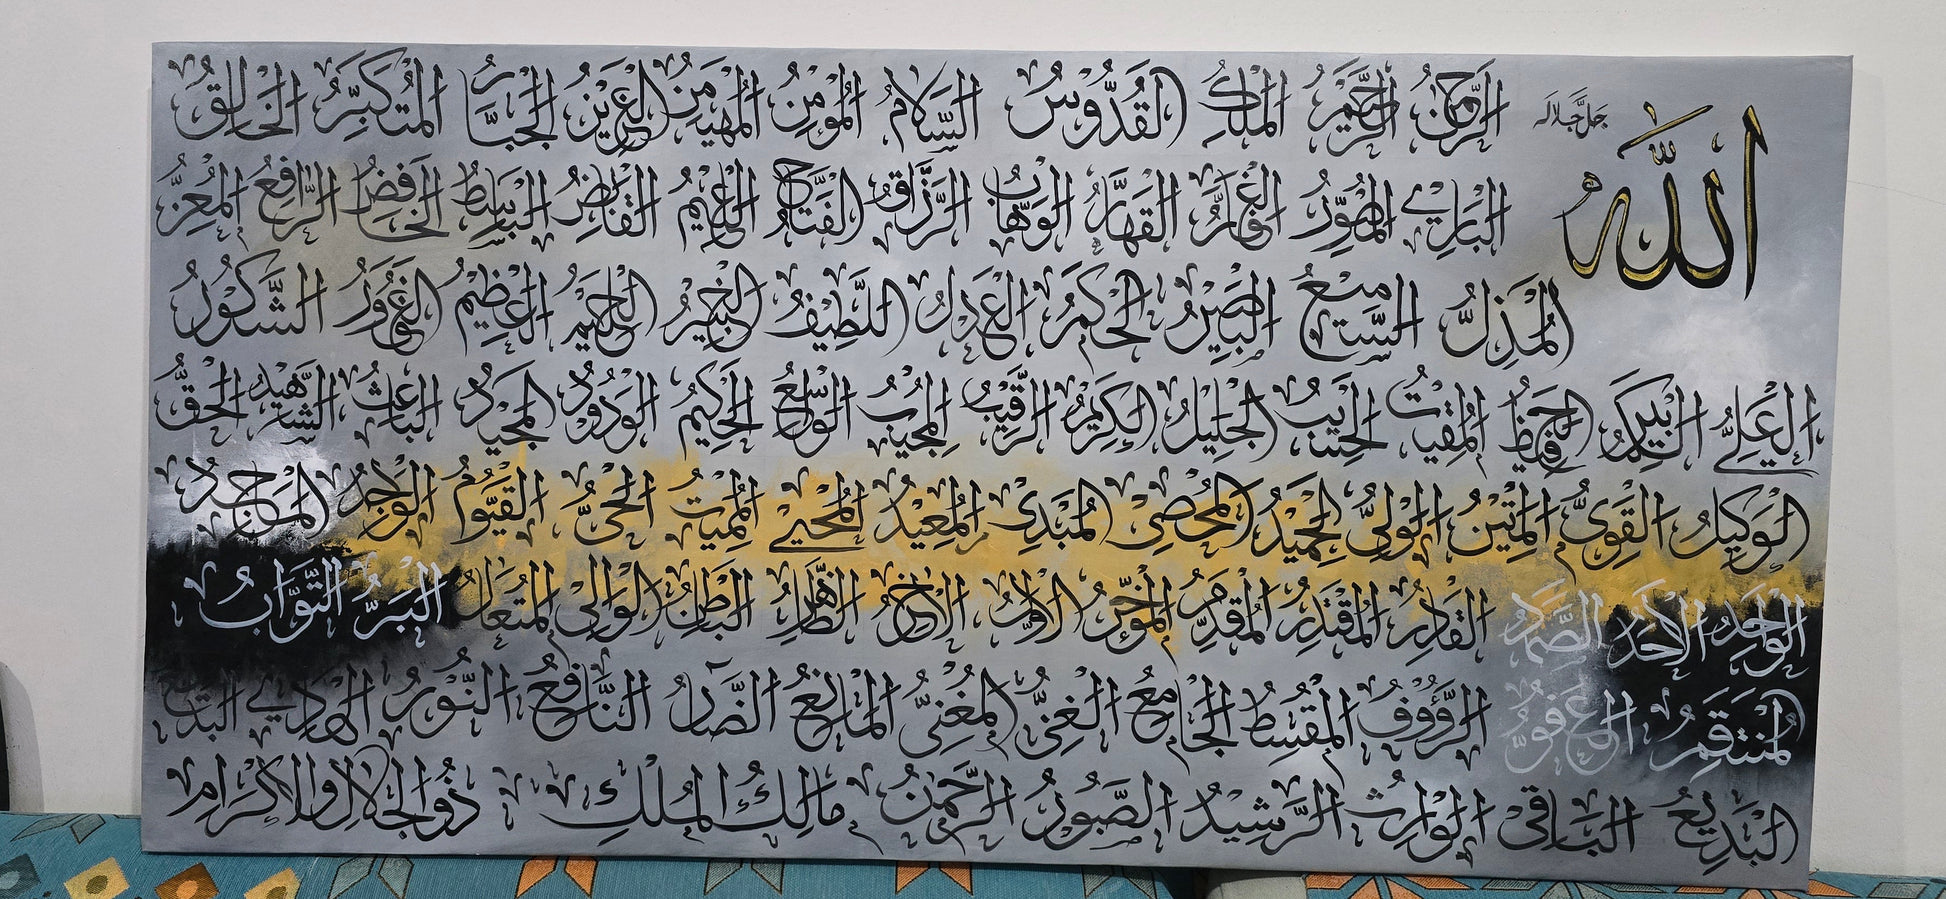 الله جَلَّ جَلَالَه
الرَّحْمٰنُ الرَّحِيْمُ المَلِكُ القُدُّوسُ السَّلَامُ المُؤمِنُ المُهَيْمِنُ العَزِيزُ الجَبَّارُ المُتَكَبِّرُ الخَالِقُ
البَارِيءُ المُصَوِّرُ الغَفَّارُ القَهَّارُ الوَهَّابُ الرَّزَّاقُ الفَتَّاحُ العَلِيْمُ القَابِضُ البَاسِطُ الخَافِضُ الرَّافِعُ المُعِزُّ
المُذِلُّ السَّمِيْعُ البَصِيْرُ الحَكَمُ العَدْلُ اللَّطِيْفُ الخَبِيْرُ الحَلِيْمُ العَظِيْمُ الغَفُوْرُ الشَّكُوْرُ
العَلِيُّ الكَبِيْرُ الحَفِيْظُ المُقِيْتُ الحَسِيْبُ الجَلِيْلُ الكَرِيْمُ الرَّقِيْبُ المُجِيْبُ الوَاسِعُ الحَكِيْمُ الوَدُوْدُ المَجِيْدُ البَاعِثُ الشَّهِيْدُ الحَقُّ
الوَكِيْلُ القَوِيُّ المَتِيْنُ الوَلِيُّ الحَمِيْدُ المُحْصِيْ المُبْدِئُ المُعِيْدُ المُحْيِيْ المُمِيْتُ الحَيُّ القَيُّوْمُ الوَاجِدُ المَاجِدُ
الوَاحِدُ الاَحَدُ الصَّمَدُ القَادِرُ المُقْتَدِرُ المُقَدِّمُ المُؤَخِّرُ الاَوَّلُ الاَخِرُ الظَّاهِرُ البَاطِنُ الوَالِي المُتَعَالُ البَرُّ التَّوَّابُ
المُنْتَقِمُ العَفُوُّ الرَّؤُوْفُ المُقْسِطُ الجَامِعُ الغَنِيُّ المُغْنِيُّ المَانِعُ الضَّارُ النَّافِعُ النُّوْرُ الهَادِيْ البَدِيْعُ
البَدِيْعُ البَاقِيْ الوَارِثُ الرَّشِيْدُ الصَّبُوْرُ الرَّحْمٰنُ مَالِكُ المُلْكِ ذُوالجَلَالِ وَالاِكْرَامِ